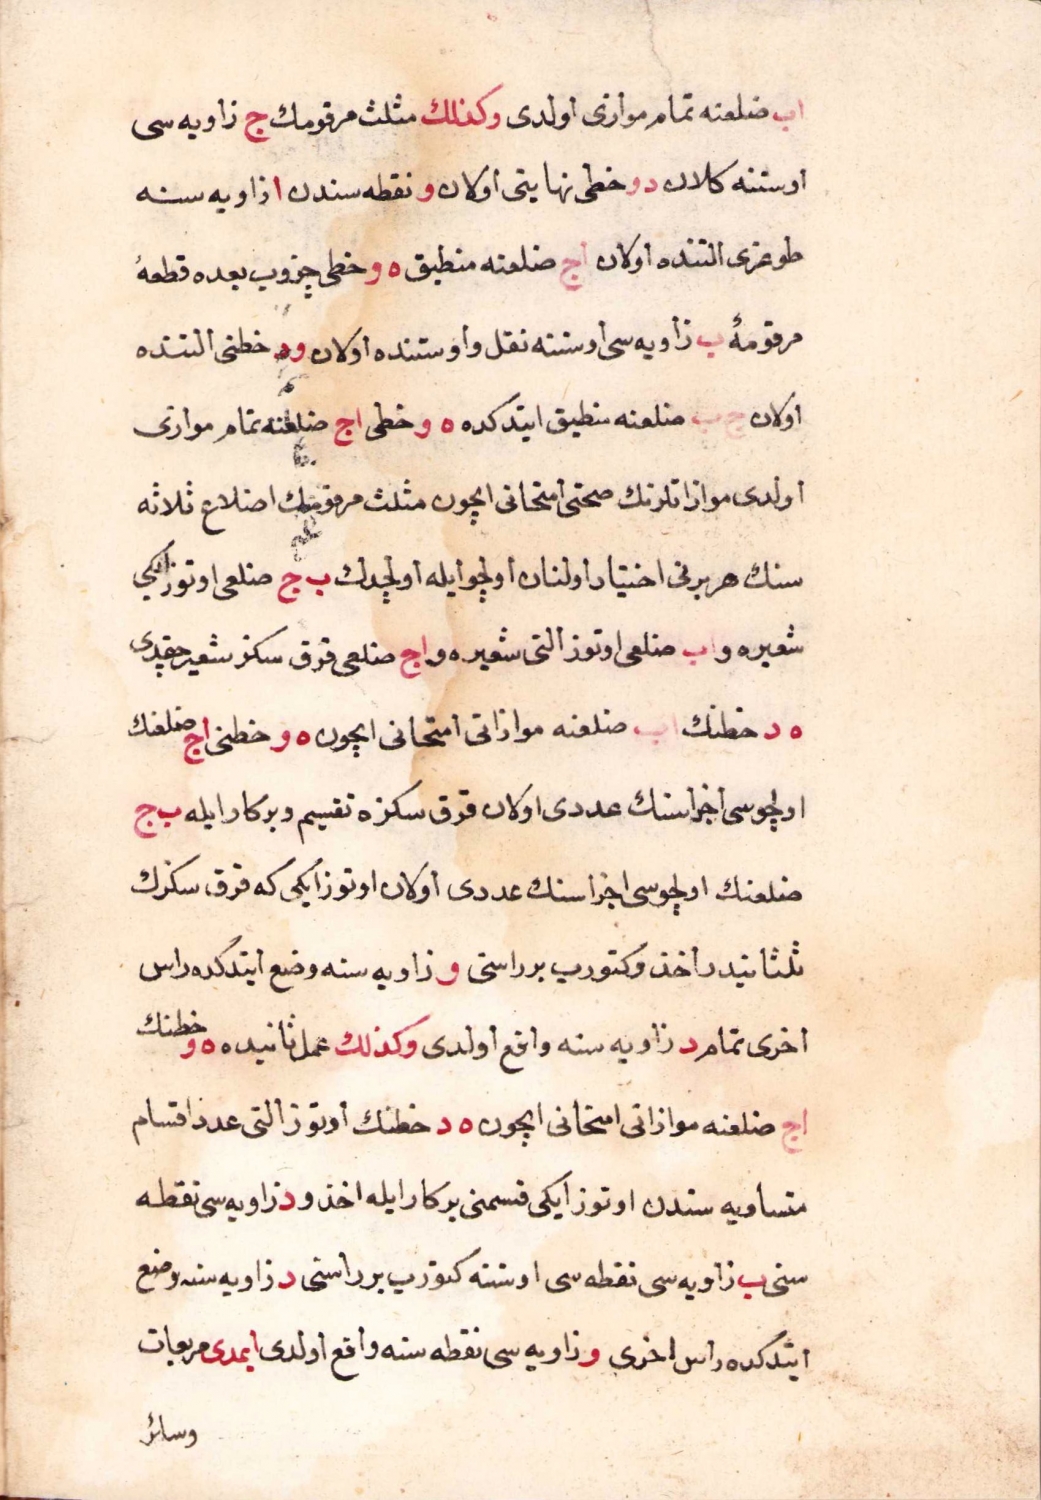 اب ضلعنه تمام موازی اولدی وكذلك مثلث مرقومك ج زاویه سی
اوستنه كلان د و خطی نهایتی اولان و نقطه سندن ا زاویه سنه
طوغری التنده اولان اج ضلعنه منطبق ه و خطی چزوب بعده قطعهٔ
مرقومهٔ ب زاویه سی اوستنه نقل واوستنده اولان و د خطنی التنده
اولان ج ب ضلعنه منطبق ایتدكده ه و خطی اج ضلعنه تمام موازی
اولدی موازاتلرنك صحتی امتحانی ایچون مثلث مرقومك اضلاع ثلاثه
سنك هر برنی اختیار اولنان اولچو ایله اولچدك ب ج ضلعی اوتوز ایكی
شعیره و اب ضلعی اوتوز التی شعیره و اج ضلعی قرق سكز شعیر چقدی
ه د خطنك اب ضلعنه موازاتی امتحانی ایچون ه و خطنی اج ضلعنك
اولچوسی اجزاسنك عددی اولان قرق سكزه تقسیم وپركار ایله ب ج
ضلعنك اولچوسی اجزاسنك عددی اولان اوتوز ایكی كه قرق سكزك
ثلثانیدر اخذ وكتورب بر راسنی و زاویه سنه وضع ایتدكده راس
اخری تمام د زاویه سنه واقع اولدی وكذلك عمل ثانیده ه و خطنك
اج ضلعنه موازاتی امتحانی ایچون ه د خطنك اوتوز التی عدد اقسام
متساویه سندن اوتوز ایكی قسمنی پركار ایله اخذ و د زاویه سی نقطه
سنی ب زاویه سی نقطه سی اوستنه كتورب بر راسنی د زاویه سنه وضع
ایتدكده راس اخری و زاویه سی نقطه سنه واقع اولدی ایمدی مربعات
وسائر